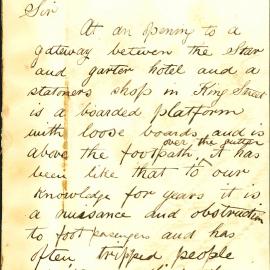 Sir
At an opening to a
gateway between the Star
and garter hotel and a
stationers shop in King Street
is a boarded platform
with loose boards and is
over the gutter
above the footpath. it has
been like that to our
knowledge for years it is
a nuisance and obstruction
to foot passengers and has
often tripped people